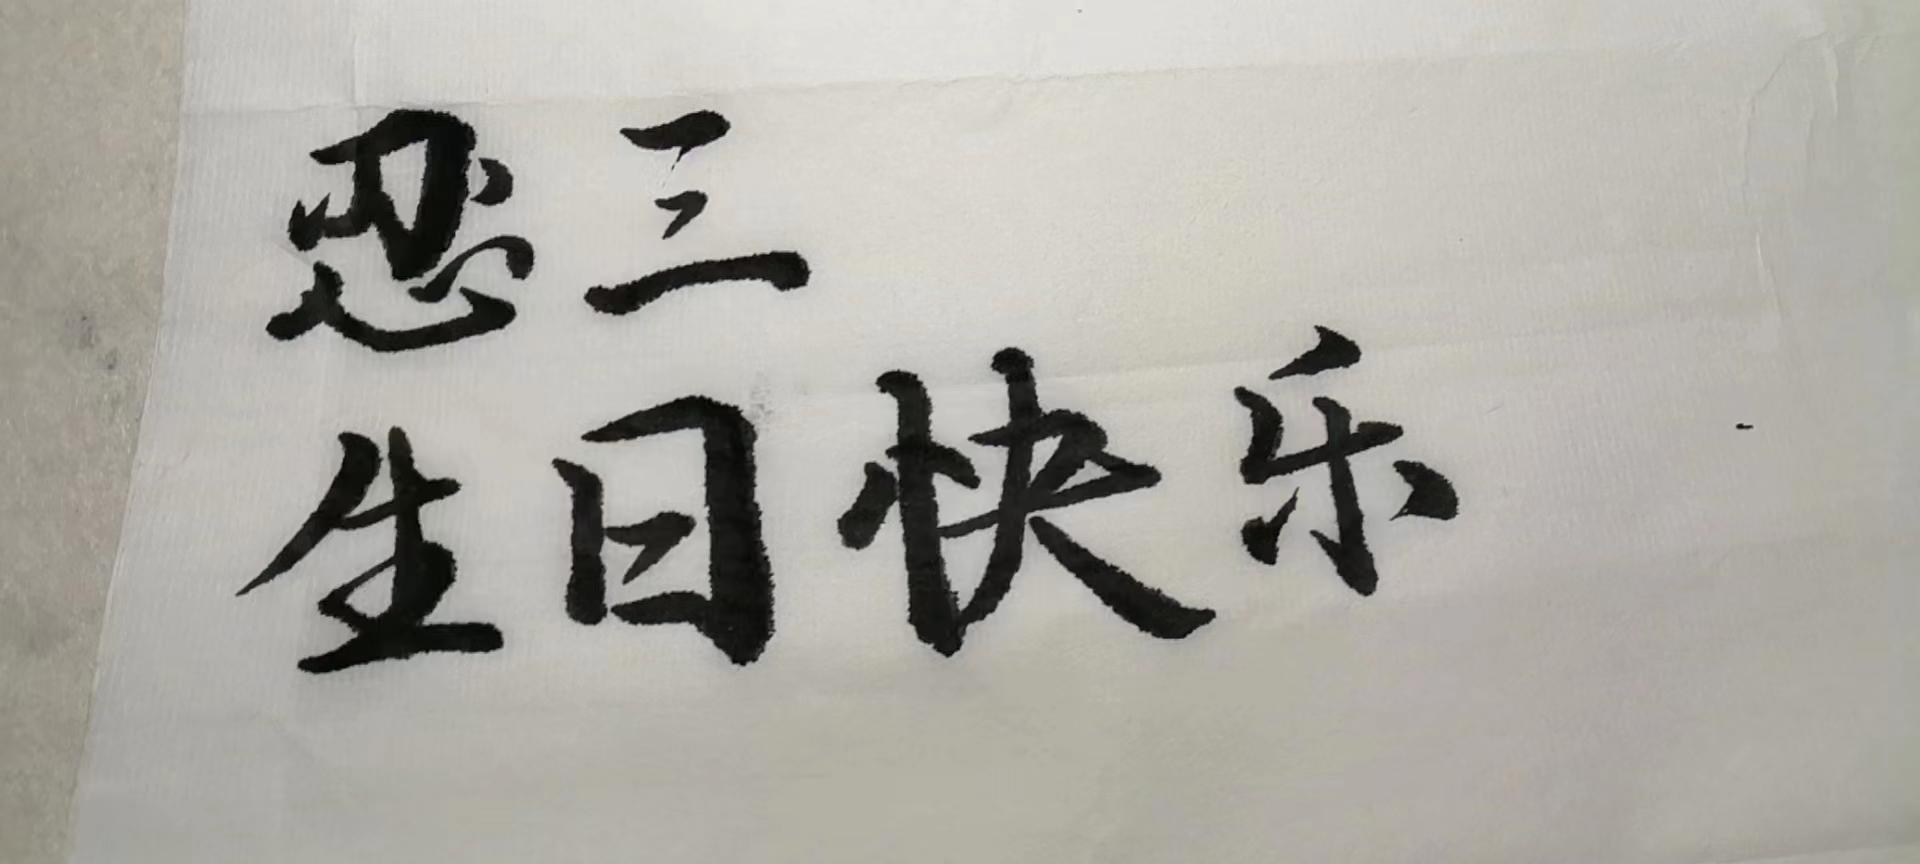 三
生日快乐